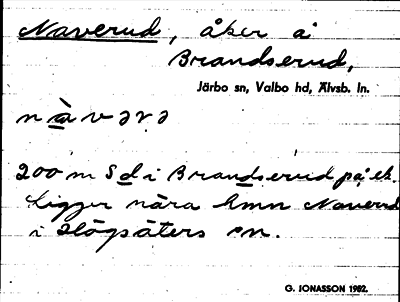 Naverud, åker å
Brandserud,
Järbo sn, Valbo hd, Älvsb. ln.
n à v ə r ə
200 m S d i Brandserud på ek.
Ligger nära hmn Naverud
i Högsäters sn.
G. JONASSON 1982.